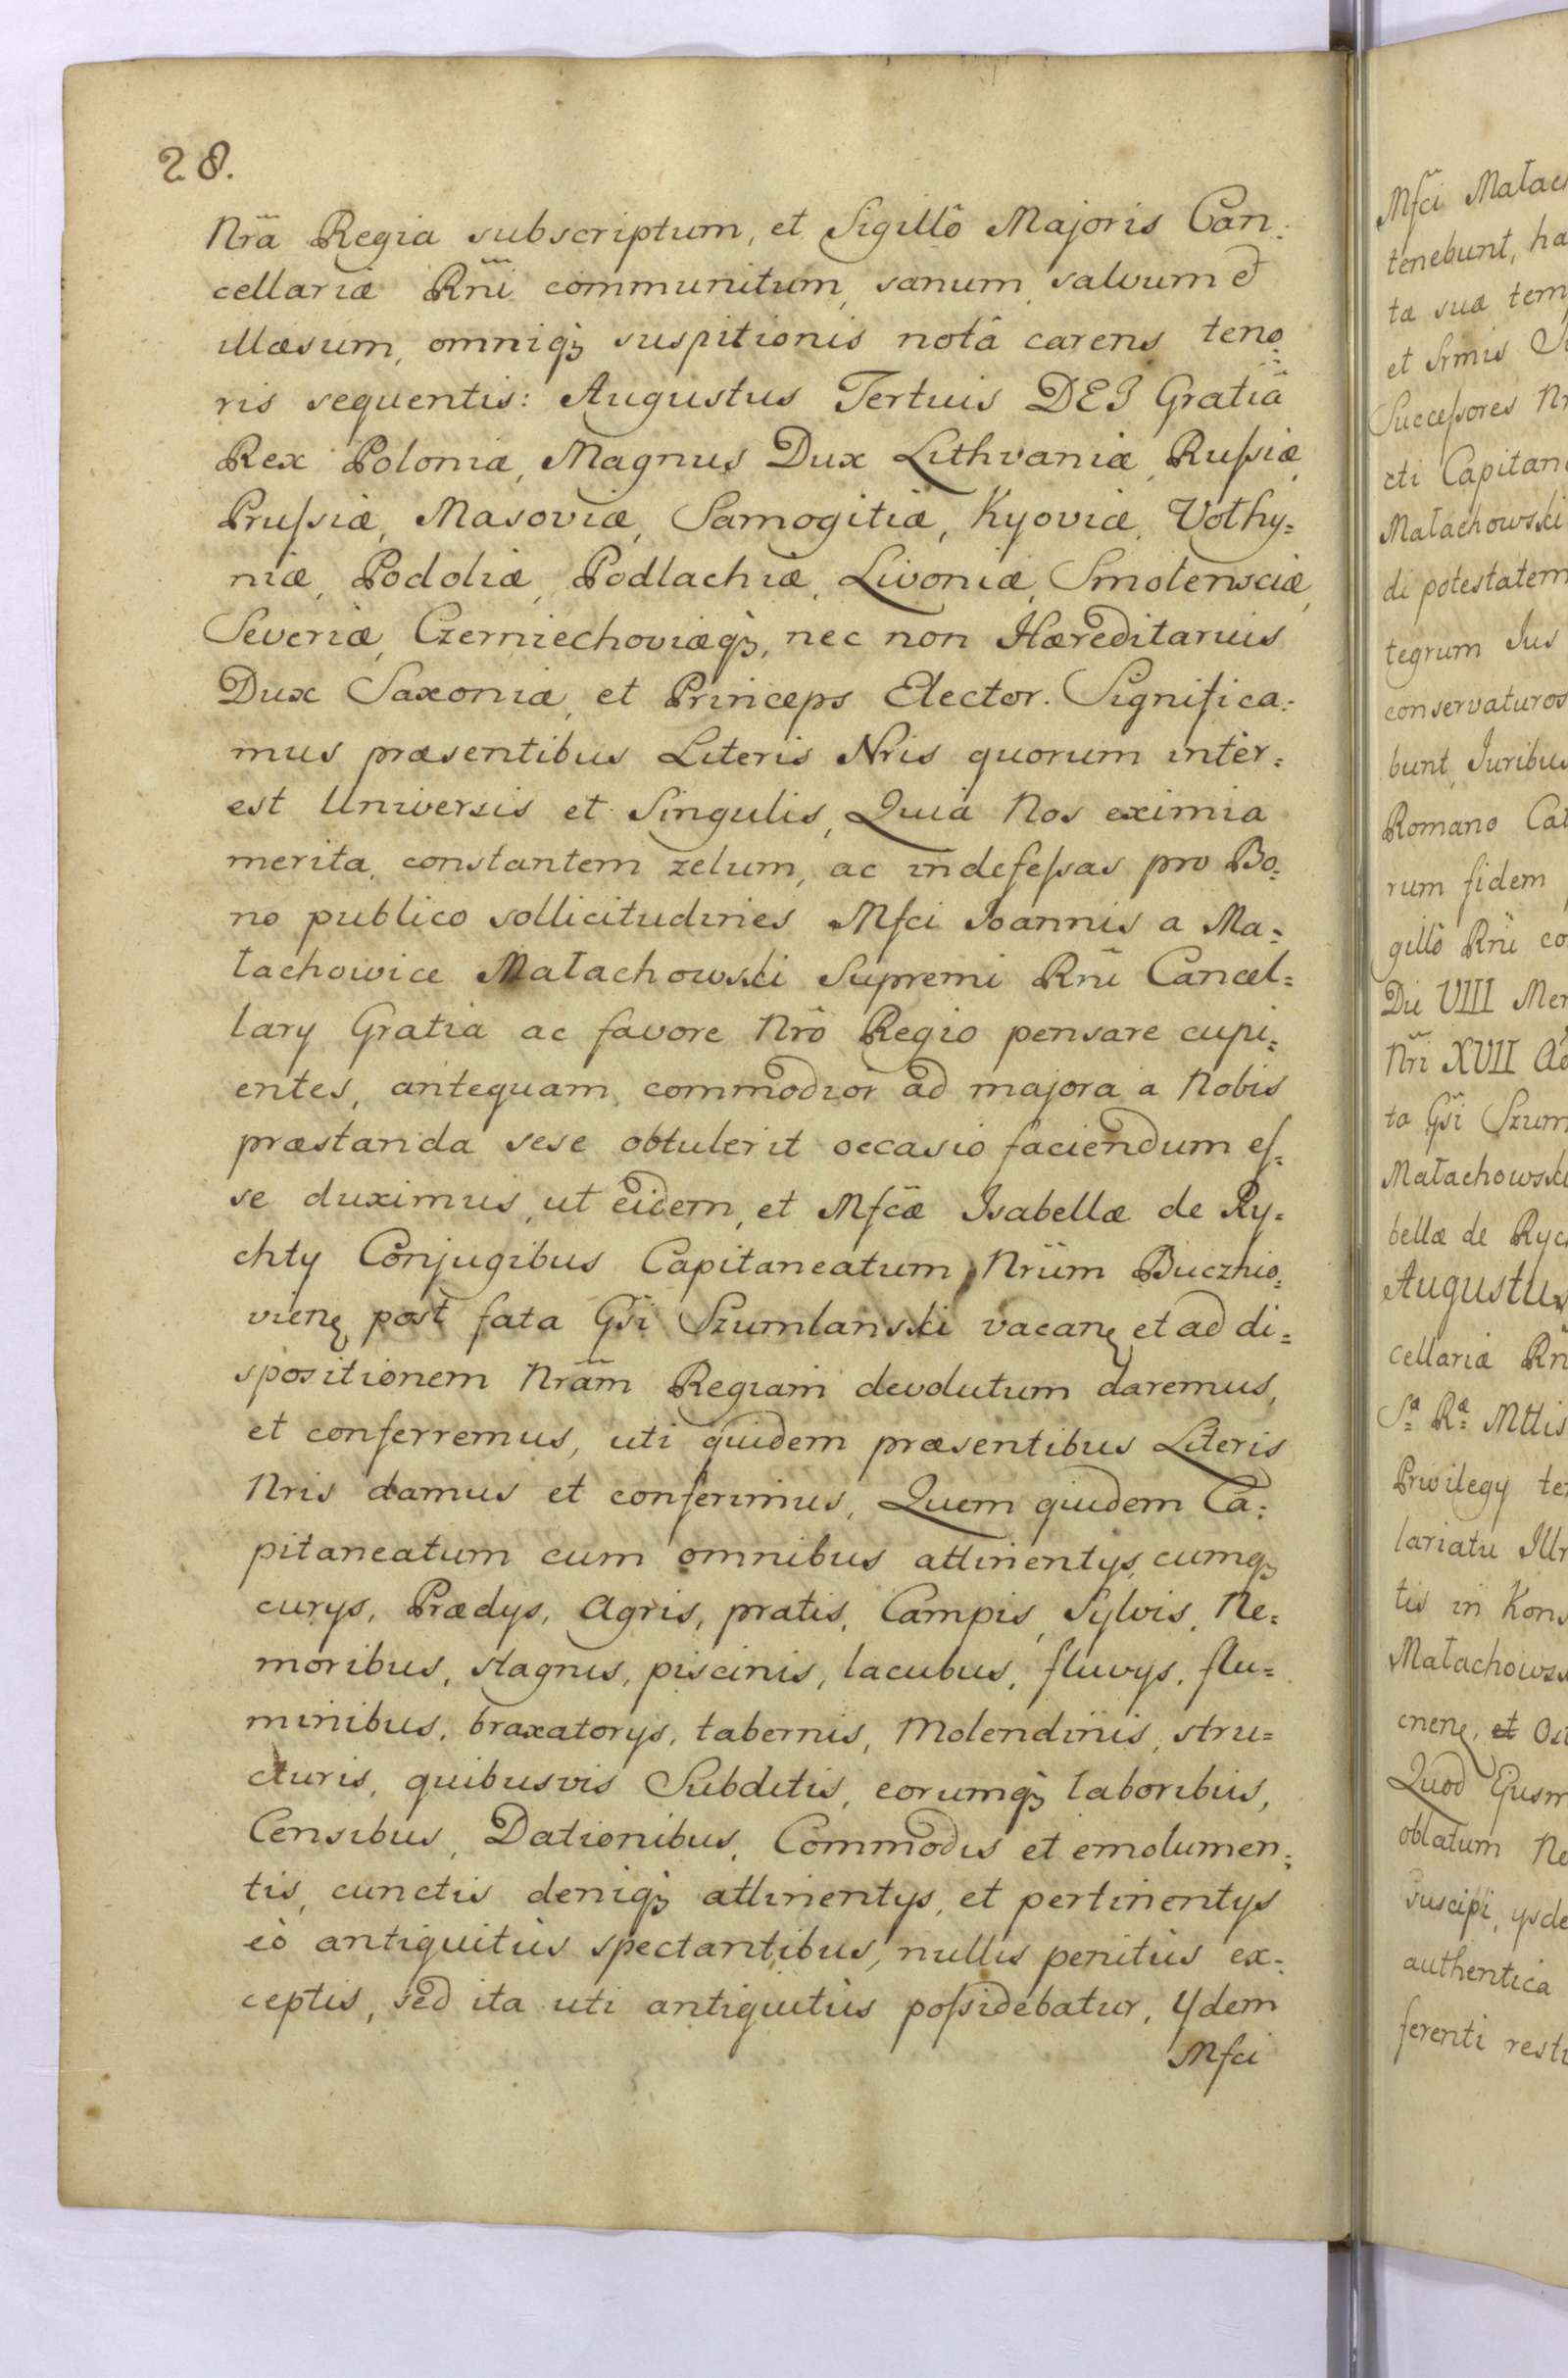 28.
Nrã Regia subscriptum, et Sigillô Majoris Can:
cellariæ Rñi communitum, sanum, salvum et
illæsum, omniq₃ suspitionis notâ carens teno:
ris sequentis: Augustus Tertuis DEI Gratiâ
Rex Poloniæ, Magnus Dux Lithvaniæ, Ruſsiæ,
Pruſsiæ, Masoviæ, Samogitiæ, Kyoviæ, Vołhy=
niæ, Podoliæ, Podlachiæ, Livoniæ, Smolensciæ,
Severiæ, Czerniechoviæq₃, nec non Hæreditarius
Dux Saxoniæ, et Princeps Elector. Significa:
mus præsentibus Literis Nris quorum inter:
est Universis et Singulis, Quia Nos eximia
merita, constantem zelum, ac indefeſsas pro Bo:
no publico sollicitudines Mfci Ioannis a Ma:
łachowice Małachowski Supremi Rñi Cancel=
lary Gratia ac favore Nrõ Regio pensare cupi:
entes, antequam commodior ad majora a Nobis
præstanda sese obtulerit occasio faciendum eſ:
se duximus, ut eidem, et Mfcæ Isabellæ de Ry=
chty Conjugibus Capitaneatum Nrũm Bucznio:
vien̨ post fata Gsi Szumlanski vacan̨ et ad di=
spositionem Nrãm Regiam devolutum daremus,
et conferremus, uti quidem præsentibus Literis
Nris damus et conferimus, Quem quidem Ca:
pitaneatum cum omnibus attinentys, cumq₃
curys, Prædys, Agris, pratis, Campis, Sylvis, Ne:
moribus, stagnis, piscinis, lacubus, fluvys, flu=
minibus, braxatorys, tabernis, Molendinis, stru=
cturis, quibusvis Subditis, eorumq₃ laboribus,
Censibus, Dationibus, Commodis et emolumen:
tis, cunctis deniq₃ attinentys, et pertinentys
eò antiquitùs spectantibus, nullis penitùs ex:
ceptis, sed ita uti antiquitùs poſsidebatur, Ydem
Mfci
Mfci Małac
tenebunt, ha
ta sua tem
et Srmis
Succeſsores
cti Capitan
Małachowski
di potestatem
tegrum Jus
conservaturos
bunt, Juribus
Romano Cat
rum fidem
gillô Rñi co
Die VIII Men
Nri XVII
ta Gsi Szum
Małachowski
bellæ de Ryc
Augustus
cellariæ Rñ
Sª Rª Mttis
Privilegy te
lariatu Illr
tis in Kons
Małachows
cnen̨, et Os
Quod Ejusm
oblatum Ne
suscipi, ysde
authentica
ferenti resti